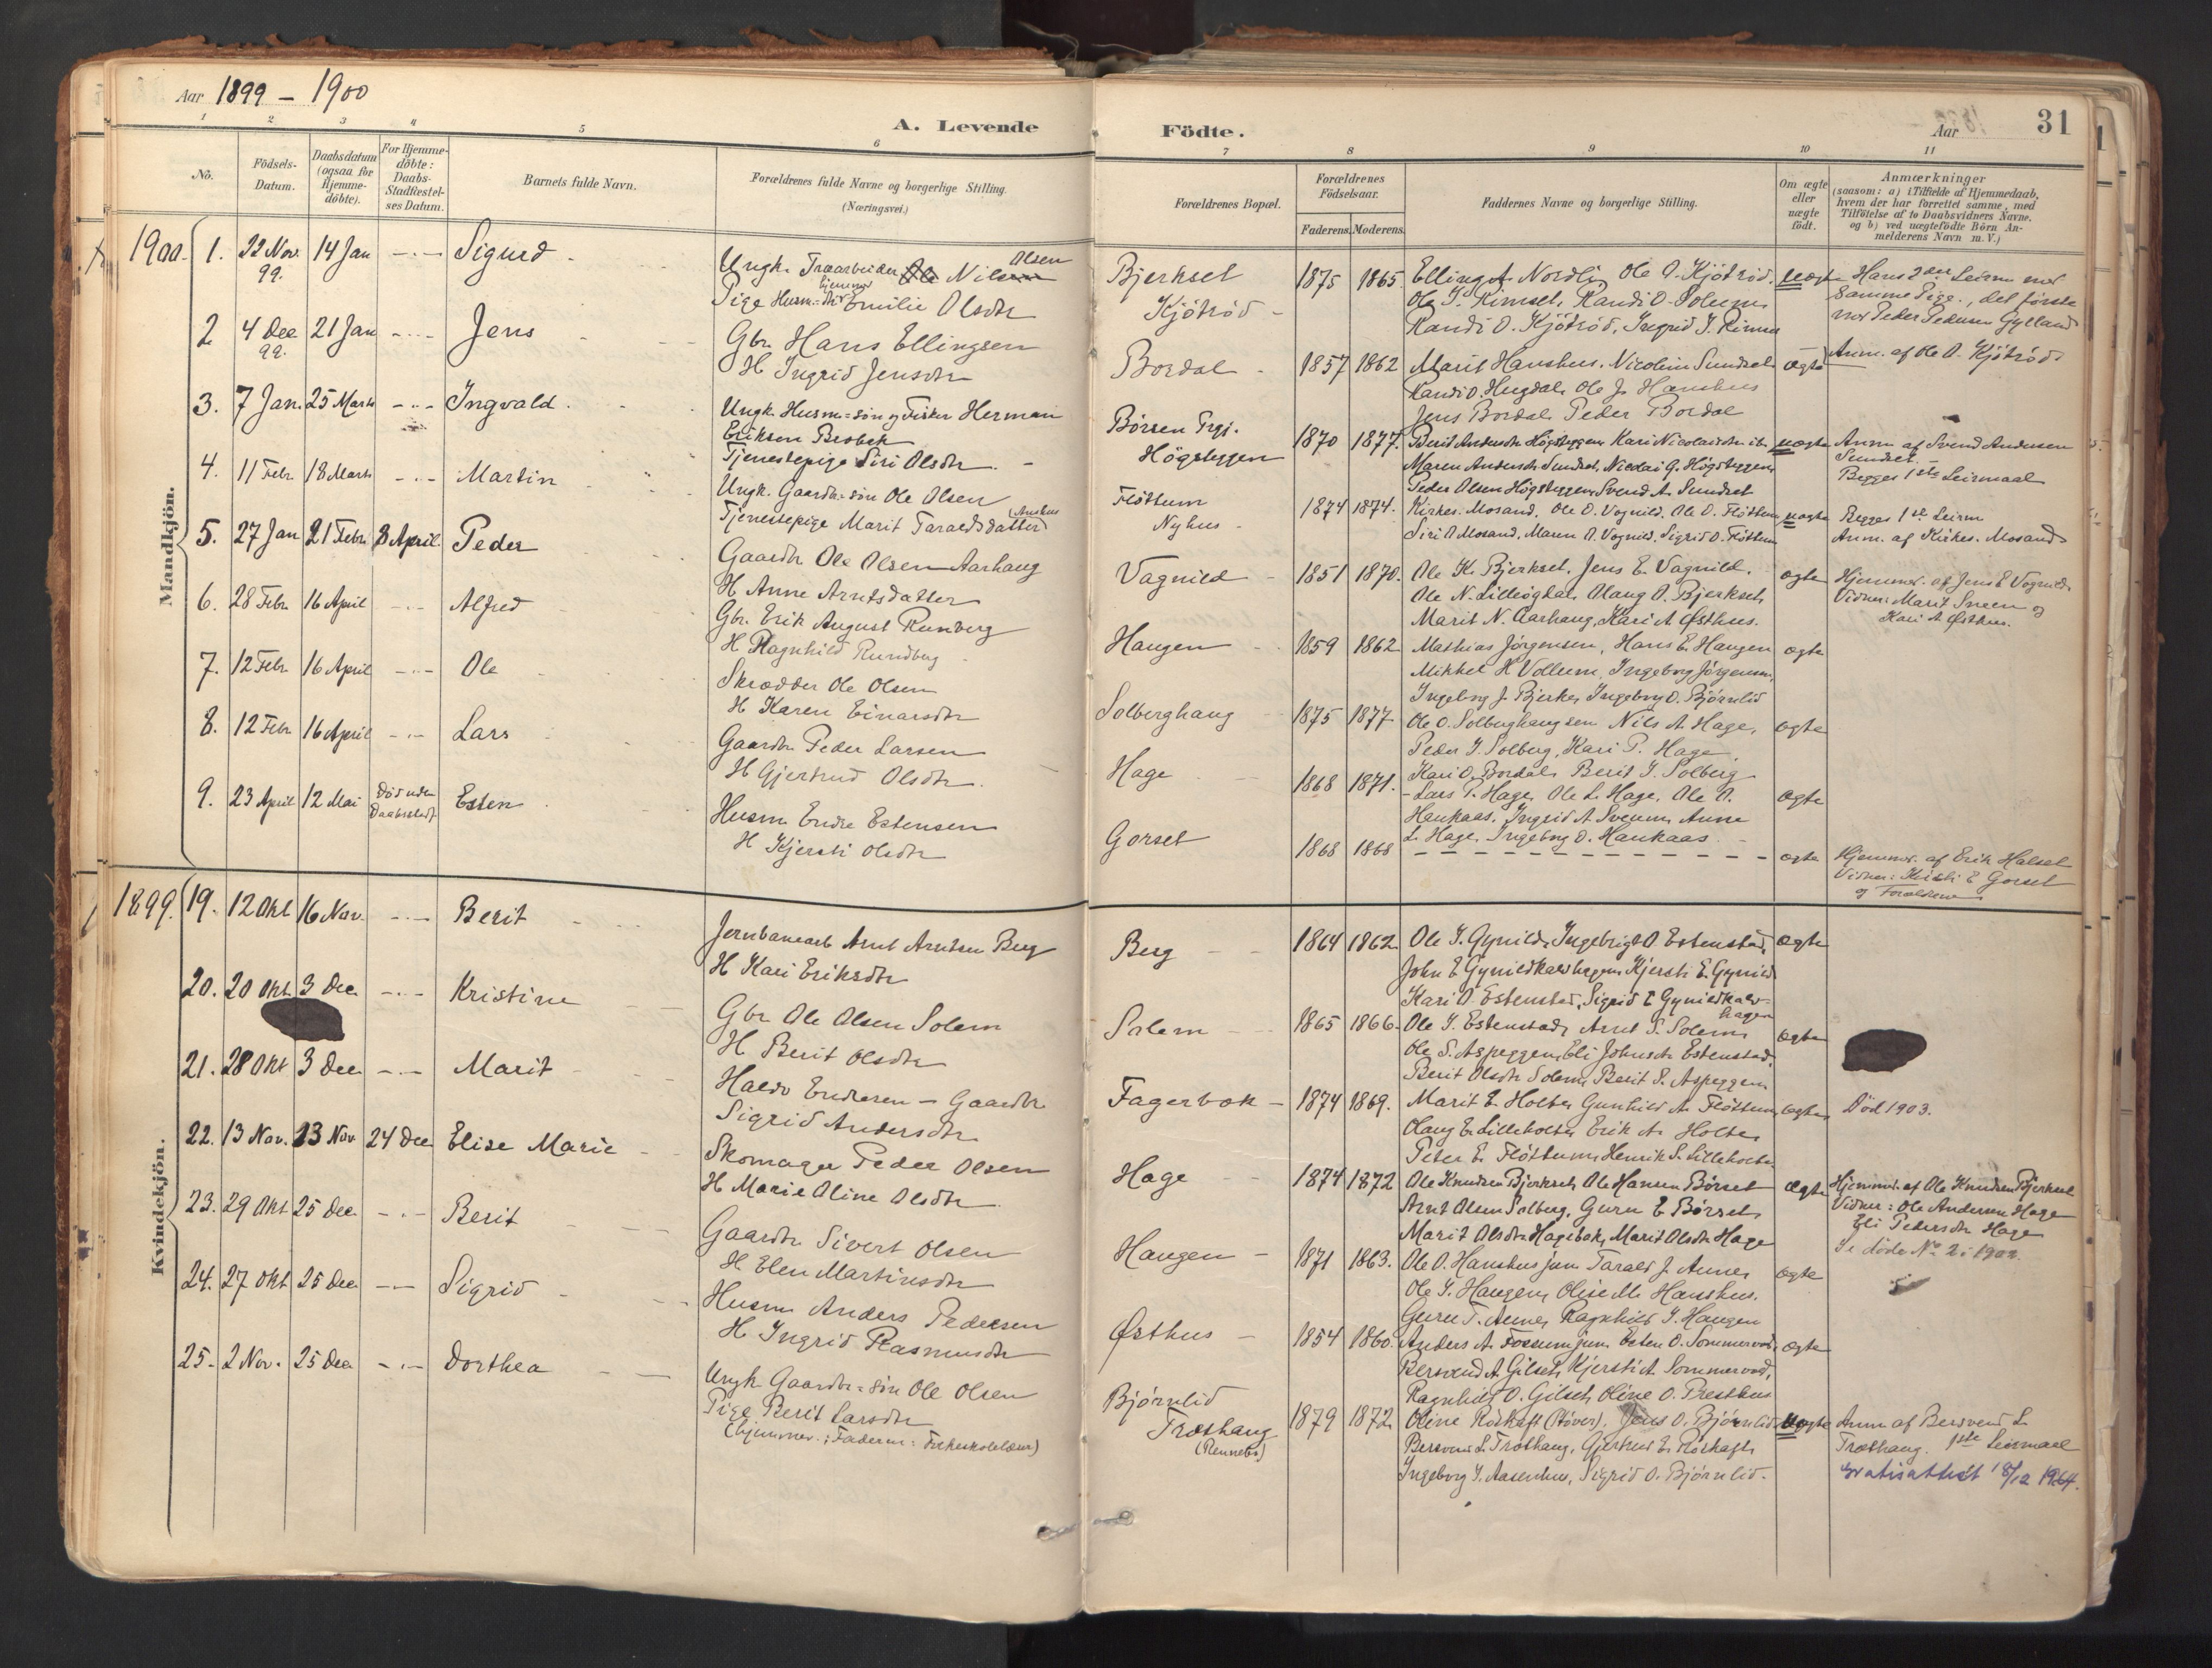 Aar 1899 - 1900
A. Levende Födte.
Aar
31
1 2 3 4 5 6 7 8 9 10 11
No.
Födsels-Datum.
Daabsdatum (ogsaa for Hjemme-döbte).
For Hjemme-döbte: Daabs-Stadfæstel-ses Datum.
Barnets fulde Navn.
Forældrenes fulde Navne og borgerlige Stilling.
(Næringsvei.)
Forældrenes Bopæl.
Forældrenes Födselsaar.
Faderens. Moderens.
Faddernes Navne og borgerlige Stilling.
Om ægte eller uægte födt.
Anmærkninger
(saasom: a) i Tilfælde af Hjemmedaab, hvem der har forrettet samme, med Tilföielse af to Daabsvidners Navne. og b) ved uægtefödte Börn An-melderens Navn m. V.)
Mandkjön.
1900. 1. 22 Nov. 99. 14 Jan - . - Sigurd
Ungk. Træarbeider Ole Nilsen Olsen
Pige Husm= hjemmev Emilie Olsdtr
Bjerkset
Kjötröd
1875 1865. Elling A. Nordli, Ole O. Kjötröd.
Ole J. Rimset, Randi O. Solum
Randi O. Kjötröd, Ingrid J. Rimset
uægte
Hans 2den Leirm med
samme Pige, det förste
med Peder Pedersen Gylland
Anm. af Ole O. Kjötröd
2 4 Dec 99. 21 Jan - . - Jens
Gbr. Hans Ellingsen
H Ingrid Jensdtr
Bordal
1857 1862 Marit Hanshus. Nicoline Sundset
Randi O. Hugdal, Ole J. Hanshus
Jens Bordal, Peder Bordal
ægte
3. 7 Jan. 25 Marts - . - Ingvald.
Ungk. Husm=sön og Fisker Herman
Eriksen Brobæk
Tjenestepige Siri Olsdtr.
Börsen Prgj.
Högsteggen
1870 1877. Berit Andersdtr Högsteggen Kari Nicolaisdtr ib
Maren Andersdtr Sundset, Nicolai G. Högsteggen
Peder Olsen Högsteggen Svend A. Sundset
uægte
Anm. af Svend Andersen
Sundset.
Begges 1ste Leirmaal
4. 11 Febr. 18 Marts - . - Martin
Ungk. Gaardbr=sön Ole Olsen
Tjenestepige Marit Taraldsdatter
Flöttum
Nyhus
1874 1874. Kirkes. Mosand. Ole O. Vognild. Ole O. Flöttum
Siri O Mosand, Maren O. Vognild. Sigrid O. Flöttum
uægte
Begges 1ste Leirm
Anm. af Kirkes. Mosand
5. 27 Jan 21 Febr. 8 April. Peder
Gaardbr Ole Olsen Aarhaug
H Anne Arntsdatter
Vagnild
1851 1870. Ole K. Bjerkset. Jens E. Vagnild.
Ole N. Lilleögdal, Olaug O. Bjerkset
Marit N. Aarhaug, Kari A Østhus.
ægte
Hjemmed. af Jens E Vognild.
Vidner: Marit Sneen og
Kari A. Østhus.
6. 28 Febr. 16 April - . - Alfred
Gbr. Erik August Runberg
H Ragnhild Rundberg
Haugen
1859 1862 Mathias Jörgensen, Hans E. Haugen
Mikkel H Vollum, Ingeborg Jörgensen.
Ingeborg J. Bjerke, Ingeborg O. Björnlid
ægte
7. 12 Febr. 16 April - . - Ole
Skrædder Ole Olsen
H Karen Einarsdtr
Solberghaug
1875 1877 Ole O. Solberghaug sen Nils A. Hage,
Peder J. Solberg, Kari P. Hage
Kari O. Bordal, Berit J. Solberg
ægte
8. 12 Febr 16 April - . - Lars
Gaardbr Peder Larsen
H Gjertrud Olsdtr.
Hage
1868 1871. Lars P. Hage, Ole L. Hage, Ole O.
Haukaas, Ingrid A Sveum, Anne
L. Hage, Ingeborg O. Haukaas
ægte
9. 23 April 12 Mai Död uden Daabsstadf. Esten
Husm. Endre Estensen
H Kjersti Olsdtr
Gorset
1868 1868 - - - - - - - - - - - -
ægte
Hjemmed. af Erik Halset
Vidner: Kirsti E Gorset
og Forældrene
Kvindekjön.
1899. 19. 12 Okt 16 Nov. - . - Berit
Jernbanearb Arnt Arntsen Berg
H Kari Eriksdtr
Berg
1864 1862 Ole J. Gynild, Ingebrigt O. Estenstad,
John E Gynildkalvhagen Kjersti E. Gynild
Kari O. Estenstad, Sigrid E Gynildkalv-
hagen
ægte
20. 20 Okt 3 Dec - . - Kristine
Gbr Ole Olsen Solem
H Berit Olsdtr
Solem
1865 1866. Ole J. Estenstad, Arnt S. Solem
Ole S. Aspeggen, Eli Johnsdtr Estenstad,
Berit Olsdtr Solem, Berit S. Aspeggen
ægte
21. 28 Okt 3 Dec - . - Marit
Haldo Endresen - Gaardbr
Sigrid Andersdtr
Fagerbæk
1874 1869. Marit E. Holte, Gunhild A. Flöttum
Olaug E. Lilleholte, Erik A. Holte
Peter E. Flöttum, Henrik S. Lilleholte
ægte
Död 1903.
22. 13 Nov. 23 Nov 24 Dec Elise Marie
Skomager Peder Olsen
H Marie Oline Olsdtr
Hage
1874 1872 Ole Knudsen Bjerkset, Ole Hansen Börset
Arnt Olsen Solberg, Guru E Börset
Marit Olsdtr Hagebak, Marit Olsdtr Hage
ægte
Hjemmd. af Ole Knudsen Bjerkset
Vidner: Ole Andersen Hage
Eli Pedersdtr Hage
Se döde No 2 i 1902.
23. 29 Okt 25 Dec - . - Berit
Gaardbr Sivert Olsen
H Elen Martinsdtr
Haugen
1871 1863. Ole O. Hanshus jun Tarald J. Aune
Ole J. Haugen, Oline M. Hanshus.
Guru T. Aune, Ragnhild J. Haugen
ægte
24. 27 Okt 25 Dec - - Sigrid
Husm Anders Pedersen
H Ingrid Rasmusdtr
Østhus
1854 1860. Anders A. Fossum jun. Esten O. Sommervod
Bersvend A Gilset, Kjersti A. Sommervod,
Ragnhild O. Gilset, Oline O. Presthus
ægte
25. 2 Nov. 25 Dec - . - Dorthea
Ungk. Gaardbr=sön Ole Olsen
Pige Berit Larsdtr
(hjemmev.; Faderen: Folkeskolelærer)
Björnlid
Træthaug
(Rennebo)
1879 1872 Oline Roskaft (Stören), Jens O. Björnlid
Bersvend L Træthaug, Gjertrud E. Roskaft
Ingeborg J. Aasenhus, Sigrid O. Björnlid.
uægte
Anm af Bersvend L.
Træthaug. 1ste Leirmaal
Gratisattest 18/12 1964.